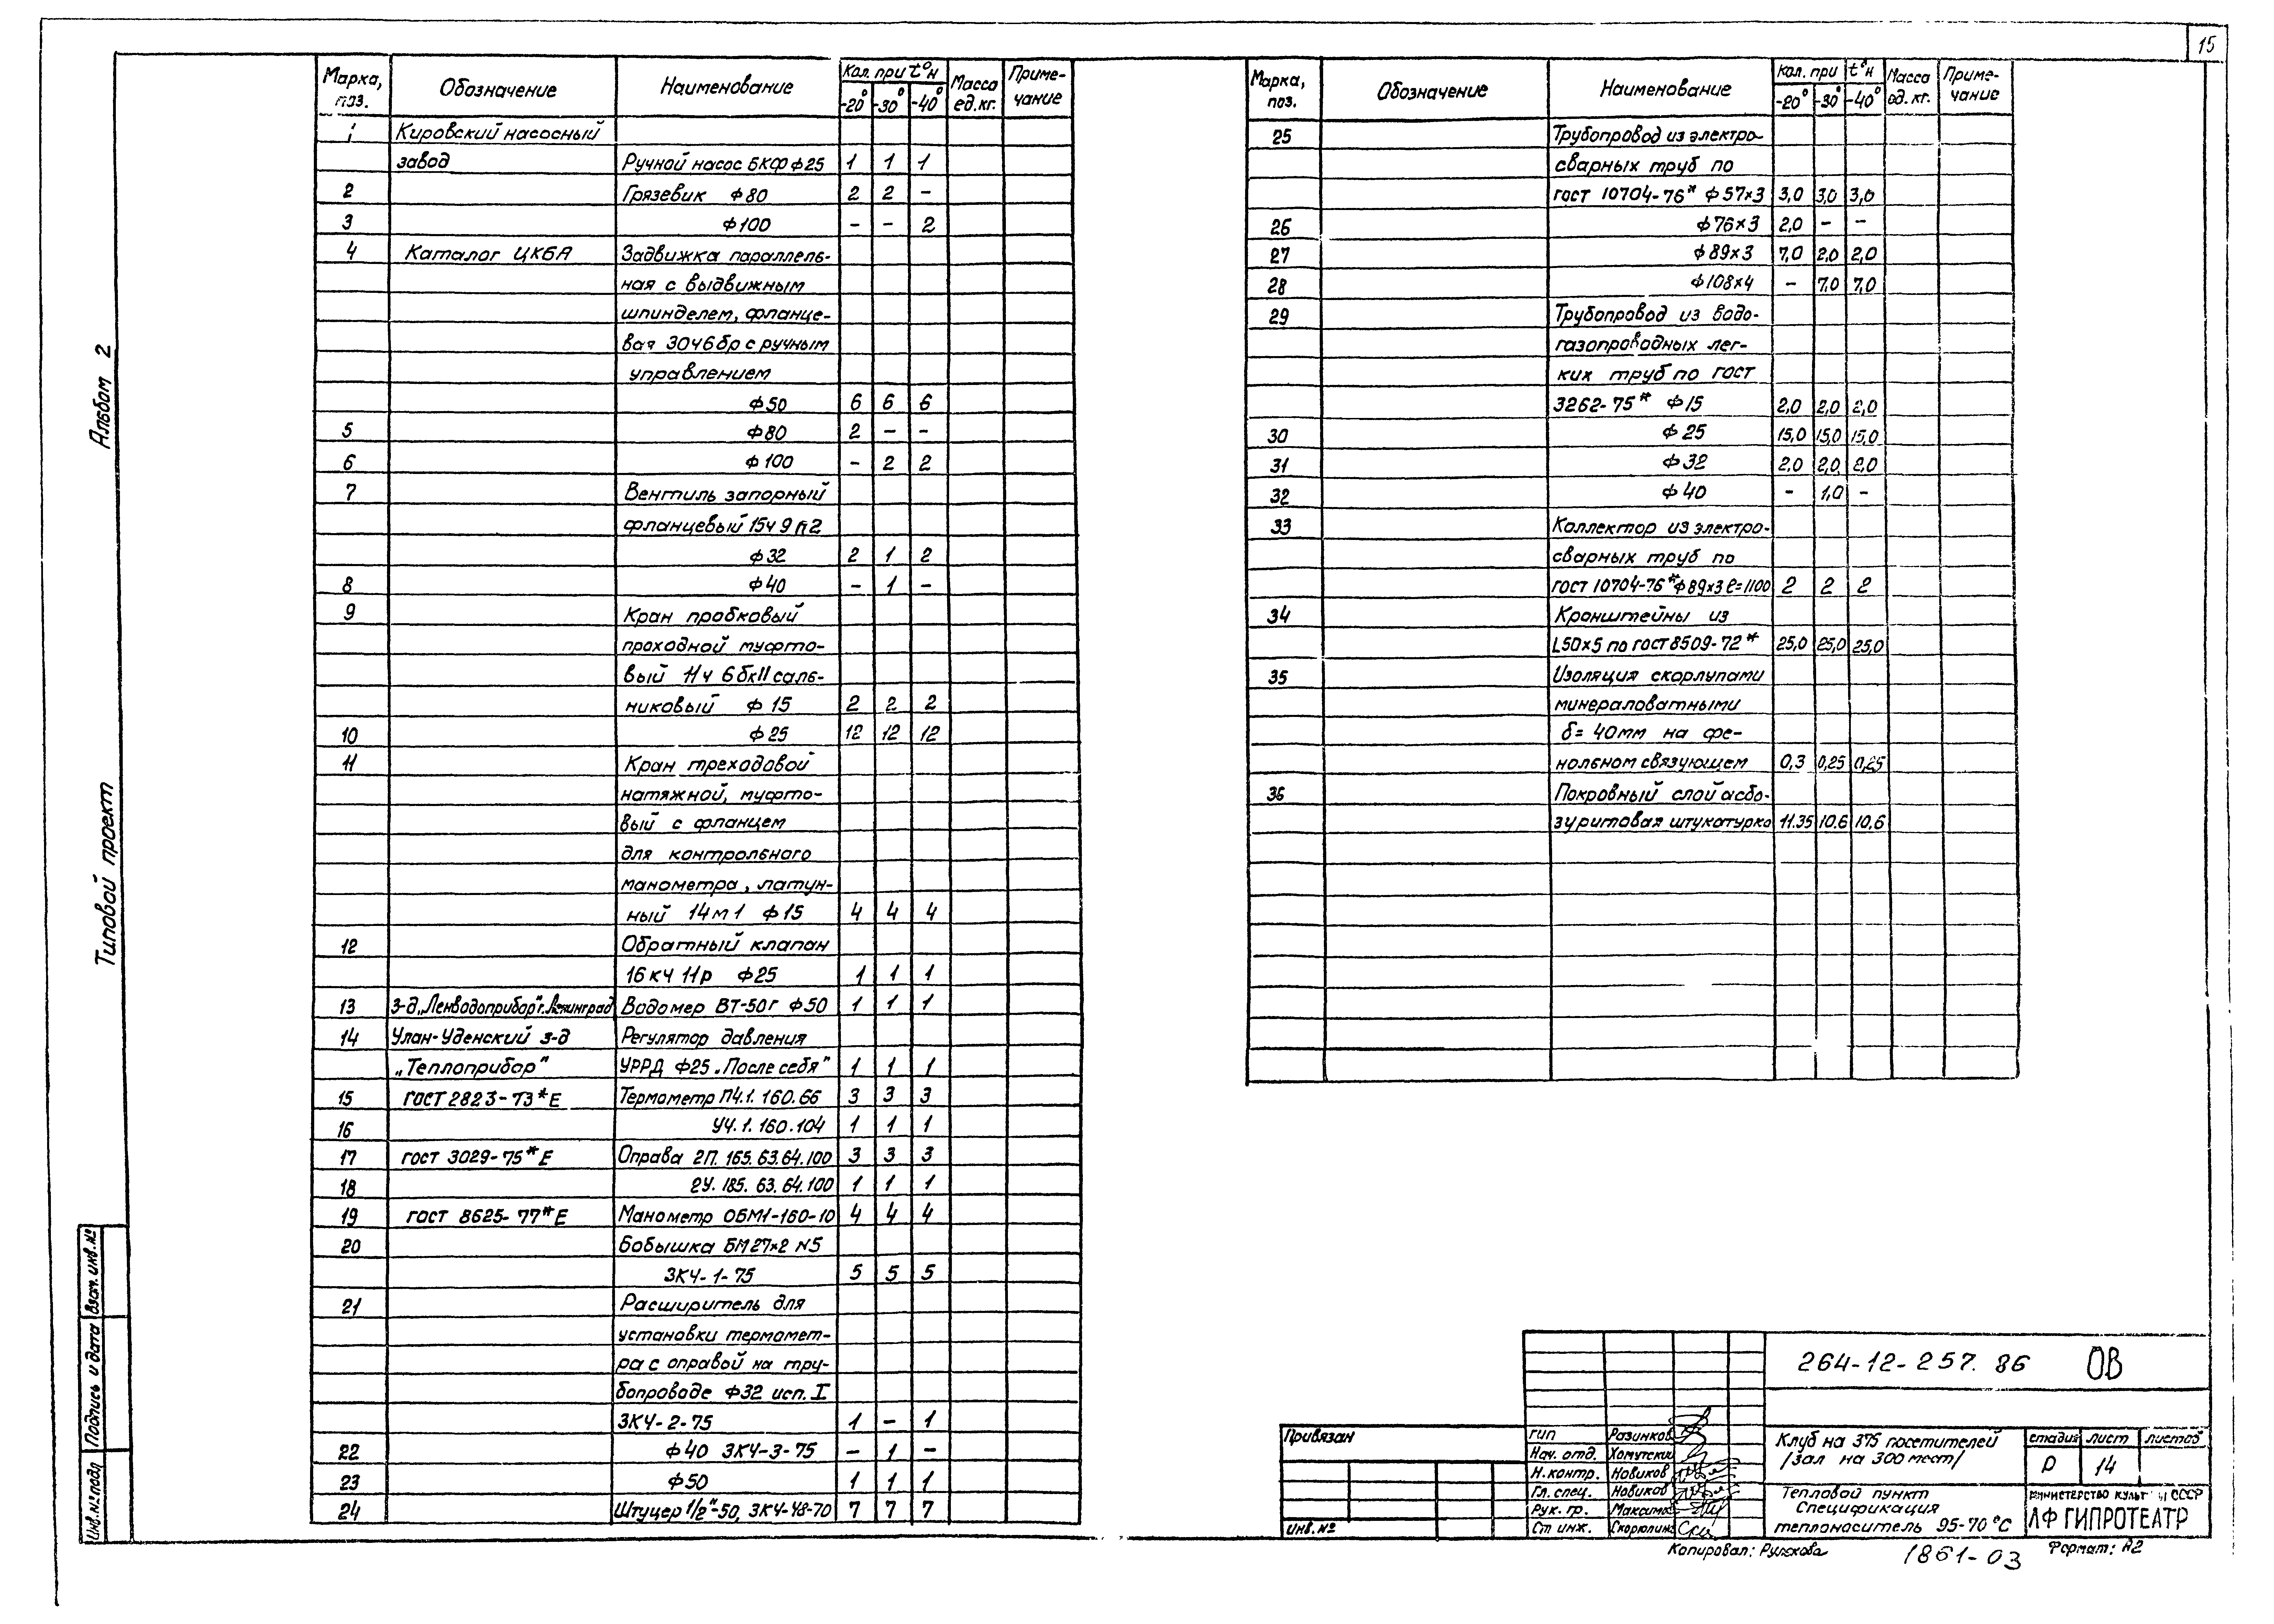 15
Альбом 2
Типовой проект
Марка, поз. Обозначение Наименование Кол. при t°н -20° -30° -40° Масса ед.кг. Приме-чание
1 Кировский насосный
завод Ручной насос БКФ ф25 1 1 1
2 Грязевик ф80 2 2 -
3 ф100 - - 2
4 Каталог ЦКБА Задвижка параллель-
ная с выдвижным
шпинделем, фланце-
вая 30ч6бр с ручным
управлением
ф50 6 6 6
5 ф80 2 - -
6 ф100 - 2 2
7 Вентиль запорный
фланцевый 15ч9п2
ф32 2 1 2
8 ф40 - 1 -
9 Кран пробковый
проходной муфто-
вый 11ч6бкII саль-
никовый ф15 2 2 2
10 ф25 12 12 12
11 Кран трехходовой
натяжной, муфто-
вый с фланцем
для контрольного
манометра, латун-
ный 14м1 ф15 4 4 4
12 Обратный клапан
16кч11р ф25 1 1 1
13 З-д „Ленводоприбор" г. Ленинград Водомер ВТ-50г ф50 1 1 1
14 Улан-Уденский з-д Регулятор давления
„Теплоприбор" УРРД ф25 „После себя" 1 1 1
15 ГОСТ 2823-73*Е Термометр П4.1.160.66 3 3 3
16 У4.1.160.104 1 1 1
17 ГОСТ 3029-75*Е Оправа 2П.165.63.64.100 3 3 3
18 2У.185.63.64.100 1 1 1
19 ГОСТ 8625-77*Е Манометр ОБМ1-160-10 4 4 4
20 Бобышка БМ27×2 N5
ЗКЧ-1-75 5 5 5
21 Расширитель для
установки термомет-
ра с оправой на тру-
бопроводе ф32 исп. I
ЗКЧ-2-75 1 - 1
22 ф40 ЗКЧ-3-75 - 1 -
23 ф50 1 1 1
24 Штуцер 1/2"-50, ЗКЧ-48-70 7 7 7
Марка, поз. Обозначение Наименование Кол. при t°н -20° -30° -40° Масса ед. кг. Приме-чание
25 Трубопровод из электро-
сварных труб по
ГОСТ 10704-76* ф57×3 3,0 3,0 3,0
26 ф76×3 2,0 - -
27 ф89×3 7,0 2,0 2,0
28 ф108×4 - 7,0 7,0
29 Трубопровод из водо-
газопроводных лег-
ких труб по ГОСТ
3262-75* ф15 2,0 2,0 2,0
30 ф25 15,0 15,0 15,0
31 ф32 2,0 2,0 2,0
32 ф40 - 1,0 -
33 Коллектор из электро-
сварных труб по
ГОСТ 10704-76* ф89×3 ℓ=1100 2 2 2
34 Кронштейны из
L50×5 по ГОСТ 8509-72* 25,0 25,0 25,0
35 Изоляция скорлупами
минераловатными
δ=40мм на фе-
нольном связующем 0,3 0,25 0,25
36 Покровный слой асбо-
зуритовая штукатурка 11.35 10.6 10,6
264-12-257.86 ОВ
Привязан
Инв.№
ГИП Разинков
Нач. отд. Хомутский
Н.контр. Новиков
Гл. спец. Новиков
Рук. гр.
Ст инж.
Клуб на 375 посетителей
/зал на 300 мест/
стадия лист листов
Р 14
Тепловой пункт
Спецификация
теплоноситель 95-70°С
ЛФ ГИПРОТЕАТР
Копировал: 
1861-03
Формат: А2
Инв.№подл Подпись и дата Взам.инв.№